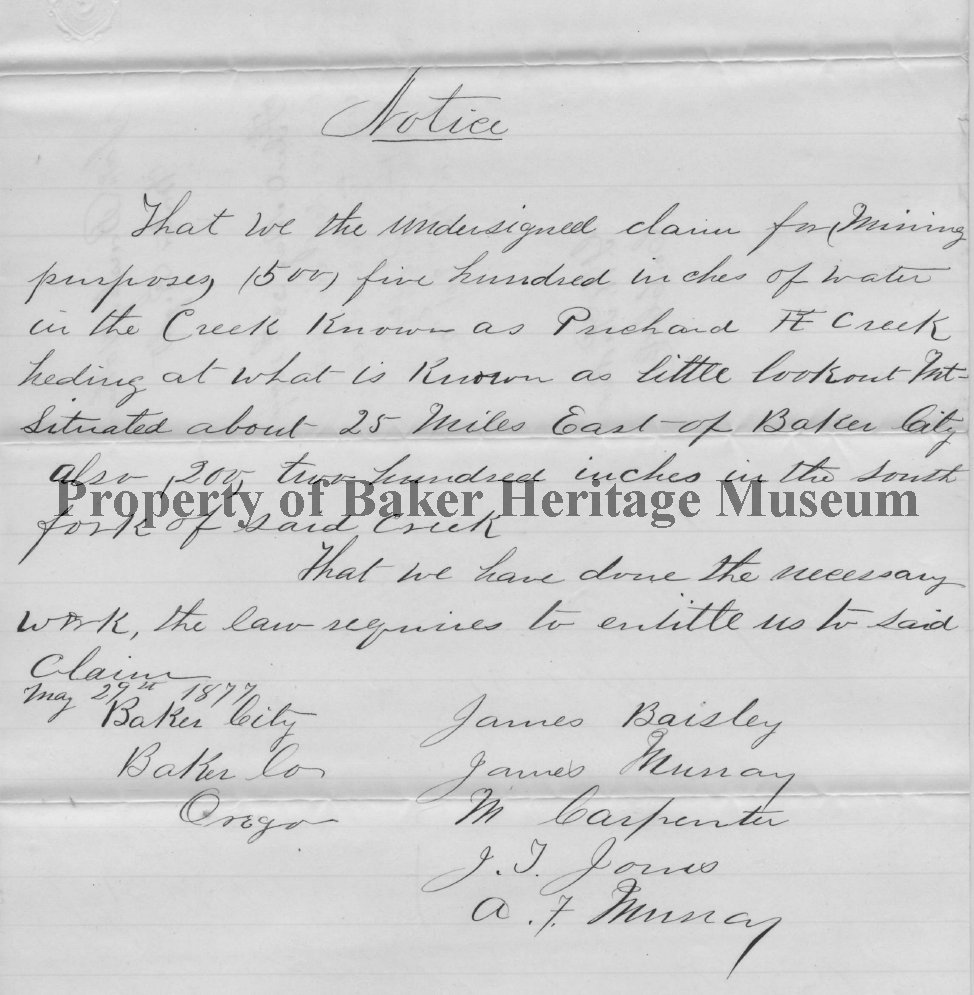 Notice
That we the undersigned claim for Mining
purposes, (500) five hundred inches of water
in the Creek Known as Prichard Creek
heding at what is Known as little lookout Mt-
Situated about 25 Miles East of Baker City
also (200) two hundred inches in the south
Property of Baker Heritage Museum
fork of said Creek
That we have done the necessary
work, the law requires to entitle us to said
Claim
May 29th 1877
Baker City
Baker Co
Orego
James Baisley
James Murray
M Carpenter
J. T. Jones
A. F. Murray